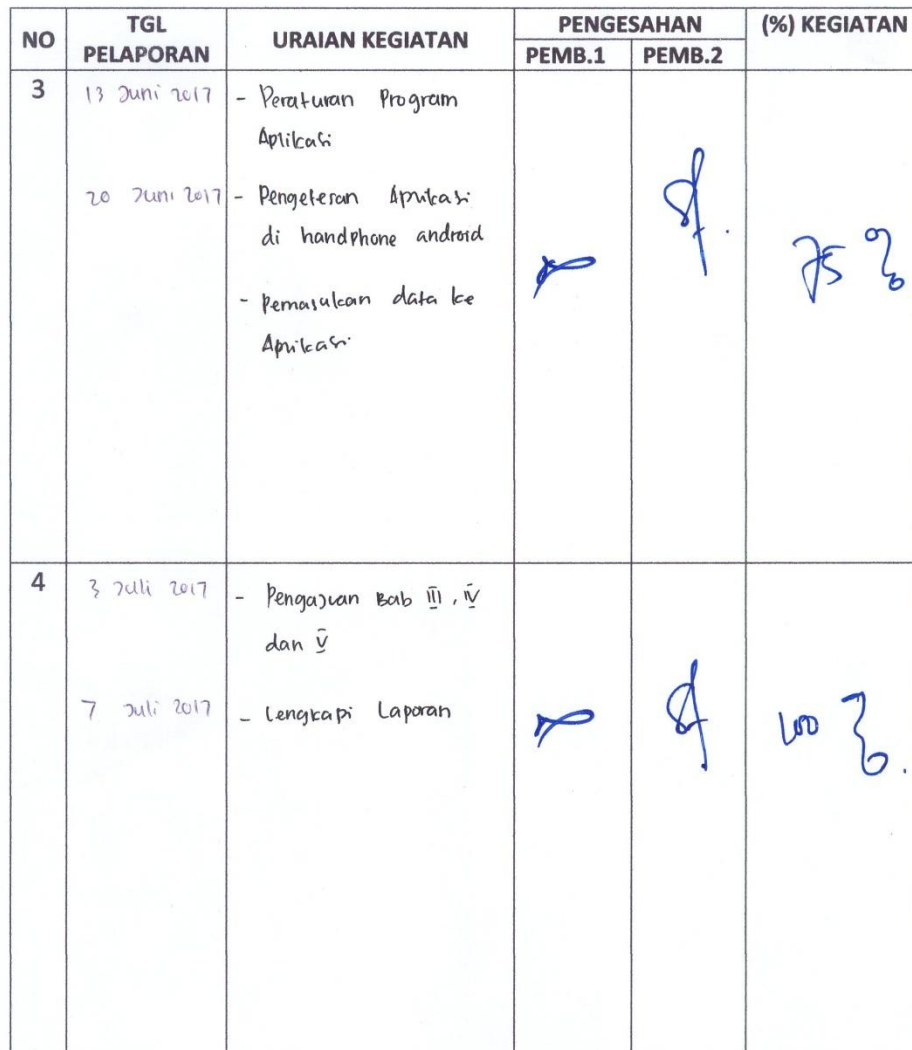 NO
TGL
PELAPORAN
URAIAN KEGIATAN
PENGESAHAN
PEMB.1
PEMB.2
(%) KEGIATAN
3
13 Juni 2017
- Peraturan Program
Aplikasi
20 Juni 2017
- Pengetesan Aplikasi
di handphone android
- Pemasukan data ke
Aplikasi
75 %
4
3 Juli 2017
- Pengajuan Bab III, IV
dan V
7 Juli 2017
- Lengkapi Laporan
100 %.